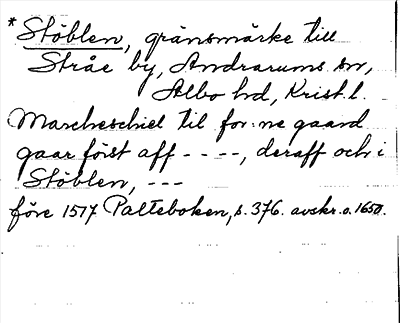 *Stöblen, gränsmärke till
Stråe by, Andrarums sn,
Albo hd, Krist. l.
Marcheschiel til for:ne gaard
gaar först aff - - - -, deraff och i
Stöblen, - - -
före 1517 Palteboken, s. 376. avskr. o. 1650.